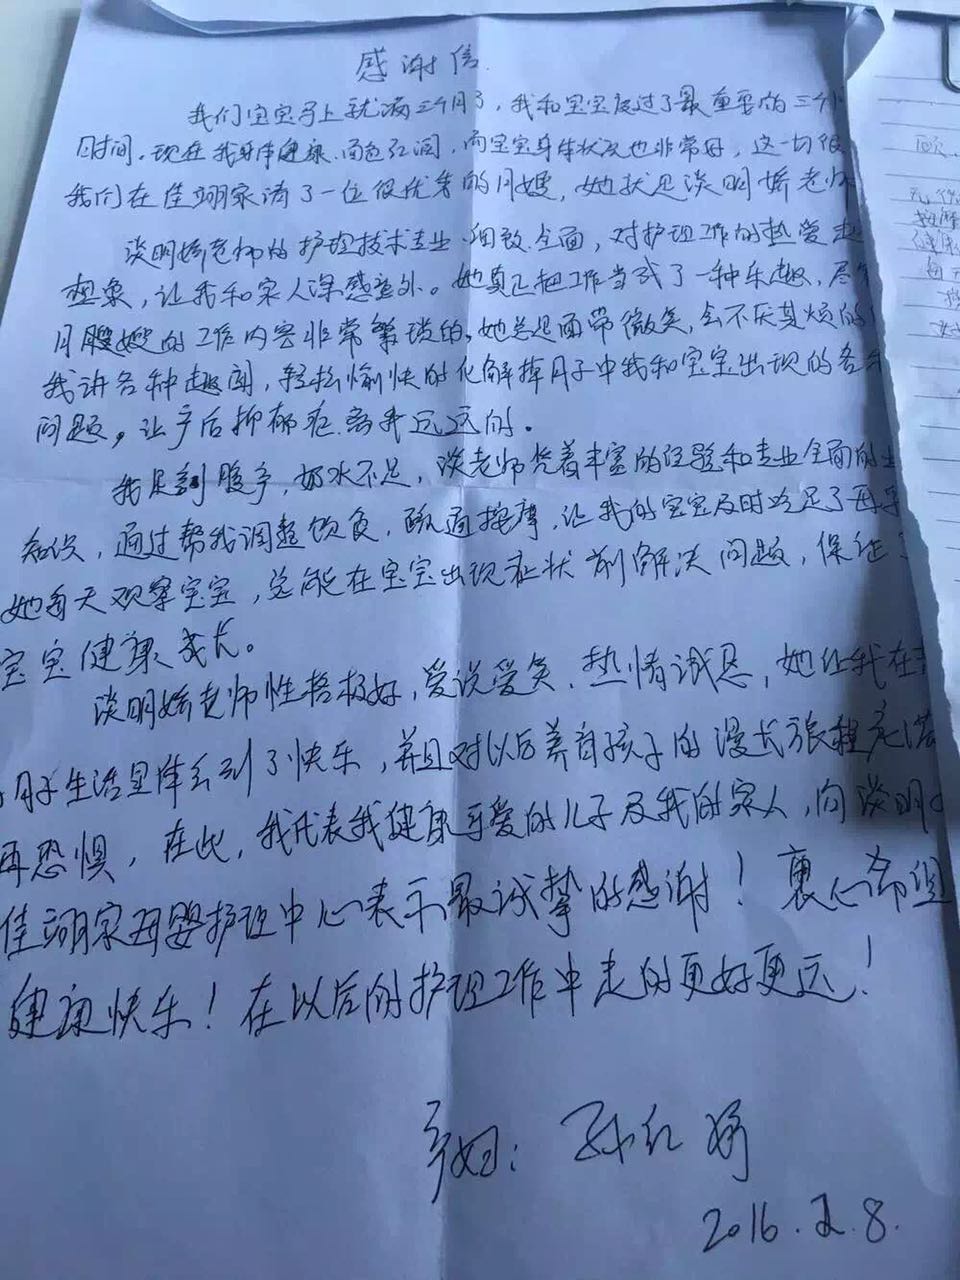 感谢信
我们宝宝马上就满三个月了，我和宝宝度过了最重要的三个月
时间，现在我身体健康，面色红润，而宝宝身体状况也非常好，这一切很
我们在佳翊家请了一位很优秀的月嫂，她就是谈明娇老师
谈明娇老师的护理技术专业、细致、全面，对护理工作的热爱超
想象，让我和家人深感意外。她真正把工作当成了一种乐趣，尽管
月嫂的工作内容非常繁琐的，她总是面带微笑，会不厌其烦的
我讲各种趣闻，轻松愉快的化解掉月子中我和宝宝出现的各种
问题，让产后抑郁症离我远远的。
我是剖腹产，奶水不足，谈老师凭着丰富的经验和专业全面的
知识，通过帮我调整饮食，疏通按摩，让我的宝宝及时吃足了母乳
她每天观察宝宝，总能在宝宝出现症状前解决问题，保证了
宝宝健康成长。
谈明娇老师性格极好，爱说爱笑、热情诚恳，她让我在
月子生活里体会到了快乐，并且对以后养育孩子的漫长旅程充满
再恐惧，在此，我代表我健康可爱的儿子及我的家人，向谈明
佳翊家母婴护理中心表示最诚挚的感谢！衷心希望
健康快乐！在以后的护理工作中走的更好更远！
产妇：孙红娇
2016.2.8.